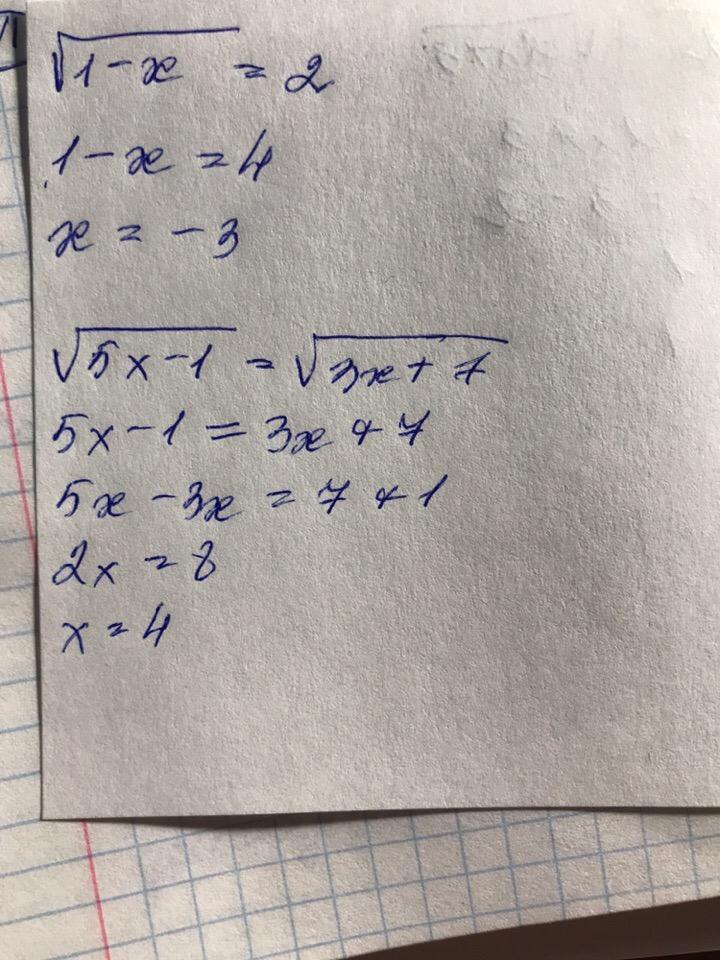 √1-x = 2
1-x = 4
x = -3
√5x-1 = √3x+7
5x-1 = 3x+7
5x-3x = 7+1
2x = 8
x = 4